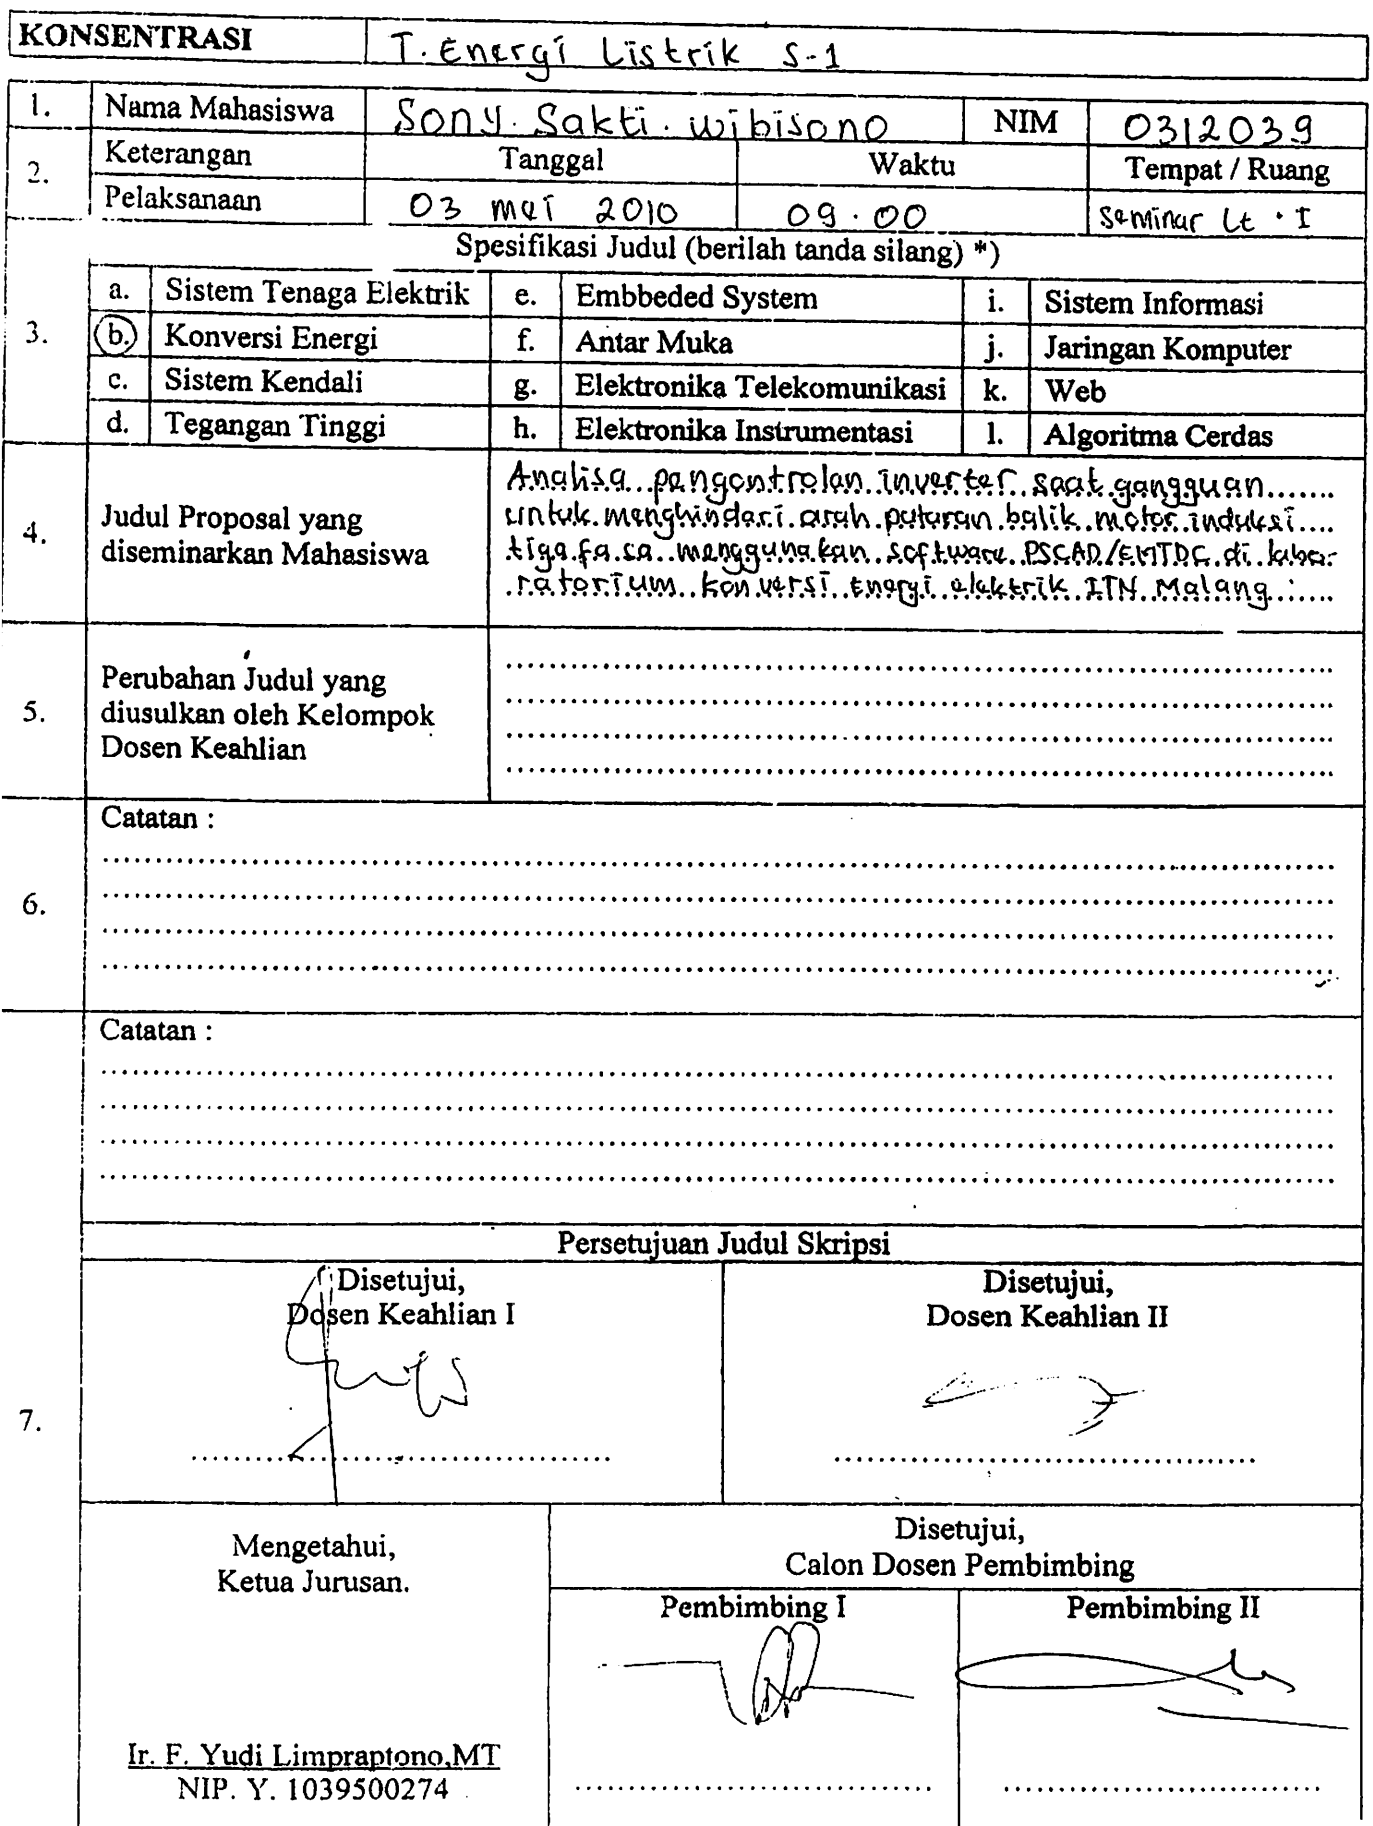 KONSENTRASI T. Energi Listrik S-1
1. Nama Mahasiswa Sony. Sakti. wibisono NIM 0312039
2. Keterangan Tanggal Waktu Tempat / Ruang
Pelaksanaan 03 mei 2010 09.00 Seminar Lt. I
Spesifikasi Judul (berilah tanda silang) *)
3.
a. Sistem Tenaga Elektrik e. Embbeded System i. Sistem Informasi
b. Konversi Energi f. Antar Muka j. Jaringan Komputer
c. Sistem Kendali g. Elektronika Telekomunikasi k. Web
d. Tegangan Tinggi h. Elektronika Instrumentasi l. Algoritma Cerdas
4. Judul Proposal yang
diseminarkan Mahasiswa
Analisa pengontrolan inverter saat gangguan
untuk menghindari arah putaran balik motor induksi
tiga fasa menggunakan software PSCAD/EMTDC di labo-
ratorium konversi energi elektrik ITN Malang
5. Perubahan Judul yang
diusulkan oleh Kelompok
Dosen Keahlian
6. Catatan :
Catatan :
7.
Persetujuan Judul Skripsi
Disetujui, Disetujui,
Dosen Keahlian I Dosen Keahlian II
Mengetahui,
Ketua Jurusan.
Disetujui,
Calon Dosen Pembimbing
Pembimbing I Pembimbing II
Ir. F. Yudi Limpraptono,MT
NIP. Y. 1039500274